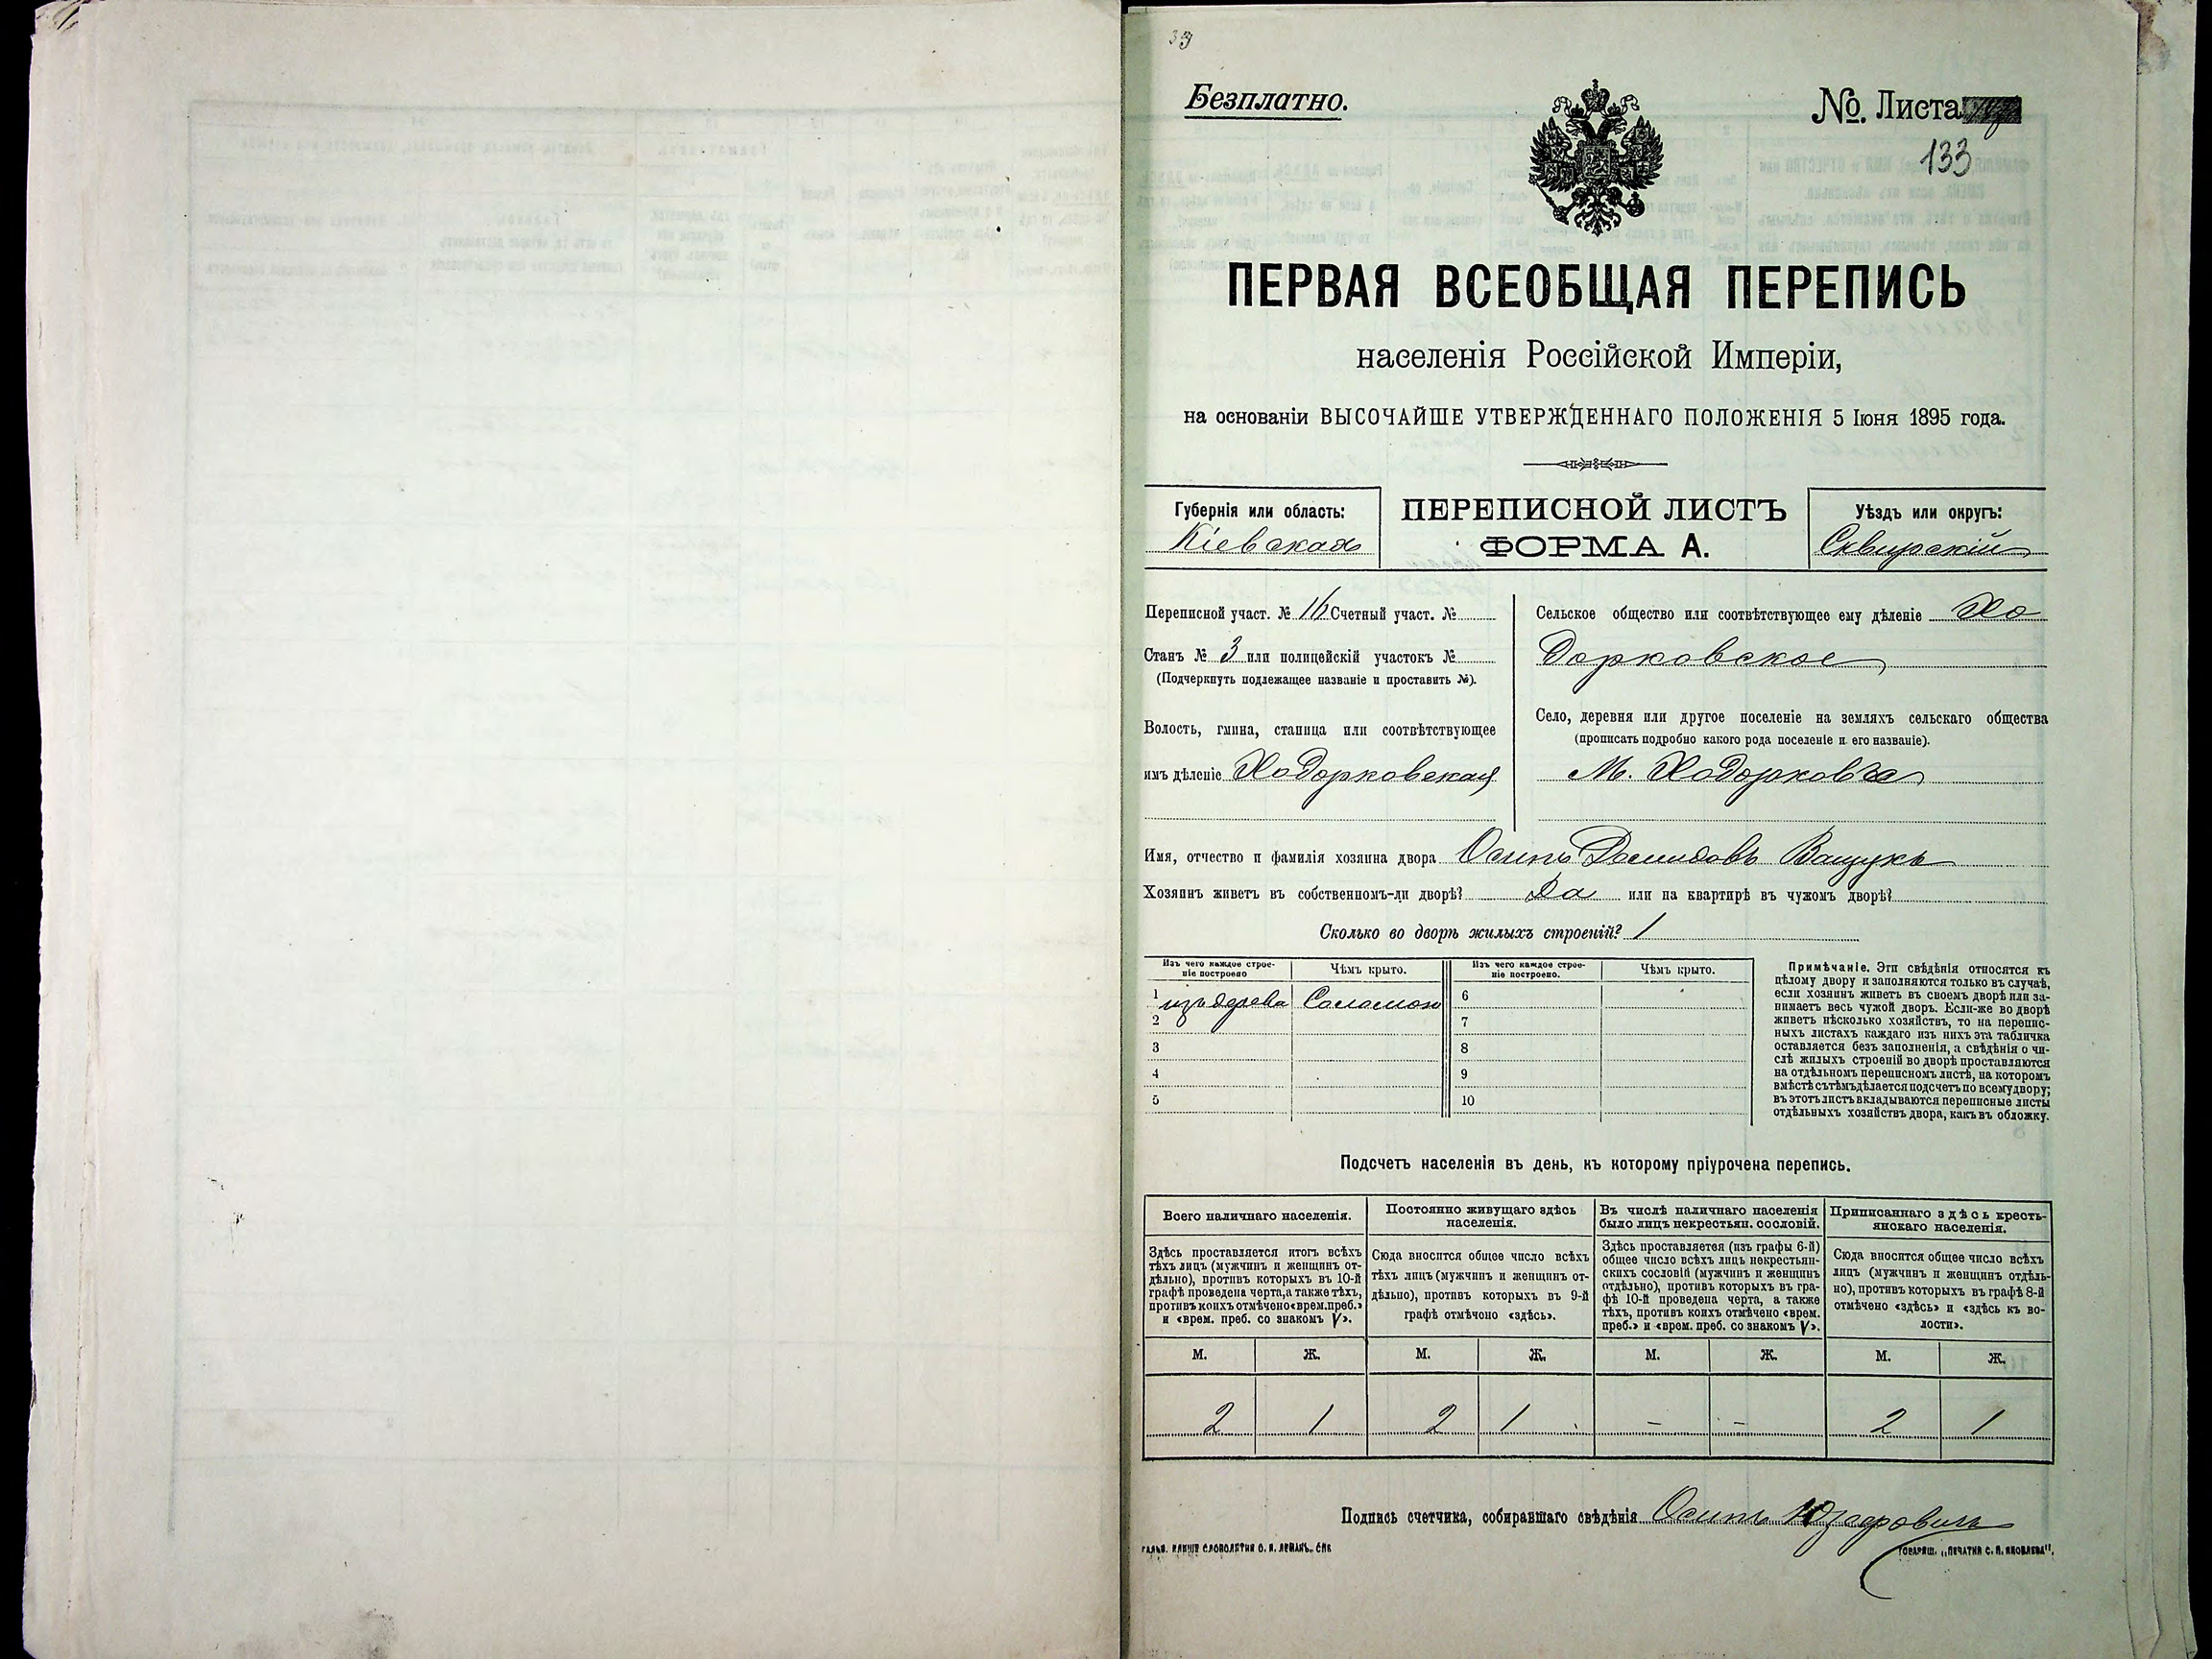 Безплатно.
№. Листа
133
ПЕРВАЯ ВСЕОБЩАЯ ПЕРЕПИСЬ
населенія Россійской Имперіи,
на основаніи ВЫСОЧАЙШЕ УТВЕРЖДЕННАГО ПОЛОЖЕНІЯ 5 Іюня 1895 года.
Губернія или область:
Кіевская
ПЕРЕПИСНОЙ ЛИСТЪ
ФОРМА А.
Уѣздъ или округъ:
Сквирскій
Переписной участ. № 16 Счетный участ. №
Станъ № 3 или полицейскій участокъ №
(Подчеркнуть подлежащее названіе и проставить №).
Волость, гмина, станица или соотвѣтствующее
имъ дѣленіе Ходорковская
Сельское общество или соотвѣтствующее ему дѣленіе Хо
дорковское
Село, деревня или другое поселеніе на земляхъ сельскаго общества
(прописать подробно какого рода поселеніе и его названіе).
М. Ходорковъ
Имя, отчество и фамилія хозяина двора Осипъ Демидовъ Ващукъ
Хозяинъ живетъ въ собственномъ-ли дворѣ? Да или на квартирѣ въ чужомъ дворѣ?
Сколько во дворѣ жилыхъ строеній? 1
Изъ чего каждое строе-
ніе построено
Чѣмъ крыто.
Изъ чего каждое строе-
ніе построено.
Чѣмъ крыто.
1 изъ дерева Соломою 6
2 7
3 8
4 9
5 10
Примѣчаніе. Эти свѣдѣнія относятся къ
цѣлому двору и заполняются только въ случаѣ,
если хозяинъ живетъ въ своемъ дворѣ или за-
нимаетъ весь чужой дворъ. Если-же во дворѣ
живетъ нѣсколько хозяйствъ, то на перепис-
ныхъ листахъ каждаго изъ нихъ эта табличка
оставляется безъ заполненія, а свѣдѣнія о чи-
слѣ жилыхъ строеній во дворѣ проставляются
на отдѣльномъ переписномъ листѣ, на которомъ
вмѣстѣ съ тѣмъ дѣлается подсчетъ по всему двору;
въ этотъ листъ вкладываются переписные листы
отдѣльныхъ хозяйствъ двора, какъ въ обложку.
Подсчетъ населенія въ день, къ которому пріурочена перепись.
Всего наличнаго населенія.
Здѣсь проставляется итогъ всѣхъ
тѣхъ лицъ (мужчинъ и женщинъ от-
дѣльно), противъ которыхъ въ 10-й
графѣ проведена черта, а также тѣхъ,
противъ коихъ отмѣчено «врем. преб.»
и «врем. преб. со знакомъ V».
Постоянно живущаго здѣсь
населенія.
Сюда вносится общее число всѣхъ
тѣхъ лицъ (мужчинъ и женщинъ от-
дѣльно), противъ которыхъ въ 9-й
графѣ отмѣчено «здѣсь».
Въ числѣ наличнаго населенія
было лицъ некрестьян. сословій.
Здѣсь проставляется (изъ графы 6-й)
общее число всѣхъ лицъ некрестьян-
скихъ сословій (мужчинъ и женщинъ
отдѣльно), противъ которыхъ въ гра-
фѣ 10-й проведена черта, а также
тѣхъ, противъ коихъ отмѣчено «врем.
преб.» и «врем. преб. со знакомъ V».
Приписаннаго здѣсь кресть-
янскаго населенія.
Сюда вносится общее число всѣхъ
лицъ (мужчинъ и женщинъ отдѣль-
но), противъ которыхъ въ графѣ 8-й
отмѣчено «здѣсь» и «здѣсь къ во-
лости».
М. Ж. М. Ж. М. Ж. М. Ж.
2 1 2 1 – – 2 1
Подпись счетчика, собиравшаго свѣдѣнія Осипъ
ГАЛЬВ. КЛИШЕ СЛОВОЛИТНИ О. И. ЛЕМАНЪ. СПБ
ТОВАРИЩ. „ПЕЧАТНЯ С. П. ЯКОВЛЕВА".